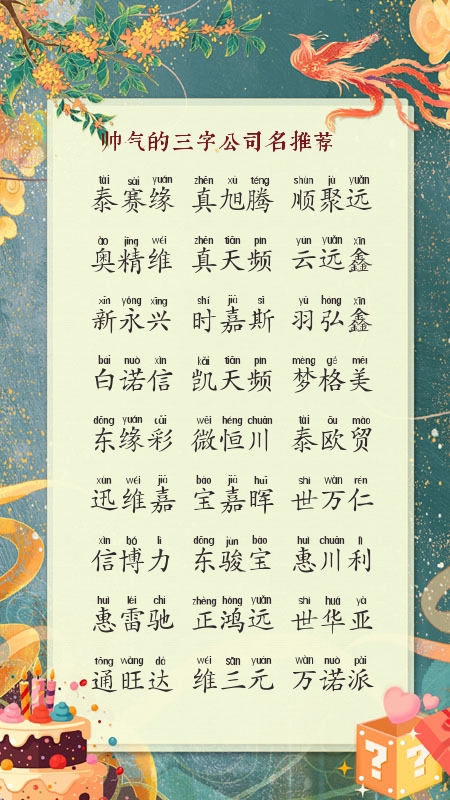 帅气的三字公司名推荐
tài sài yuán zhēn xù téng shùn jù yuǎn
泰赛缘 真旭腾 顺聚远
ào jīng wéi zhēn tiān pín yún yuǎn xīn
奥精维 真天频 云远鑫
xīn yǒng xīng shí jiā sī yǔ hóng xīn
新永兴 时嘉斯 羽弘鑫
bái nuò xìn kǎi tiān pín mèng gé měi
白诺信 凯天频 梦格美
dōng yuán cǎi wēi héng chuān tài ōu mào
东缘彩 微恒川 泰欧贸
xùn wéi jiā bǎo jiā huī shì wàn rén
迅维嘉 宝嘉晖 世万仁
xìn bó lì dōng jùn bǎo huì chuān lì
信博力 东骏宝 惠川利
huì léi chí zhèng hóng yuǎn shì huá yà
惠雷驰 正鸿远 世华亚
tōng wàng dá wéi sān yuán wàn nuò pài
通旺达 维三元 万诺派
? ?